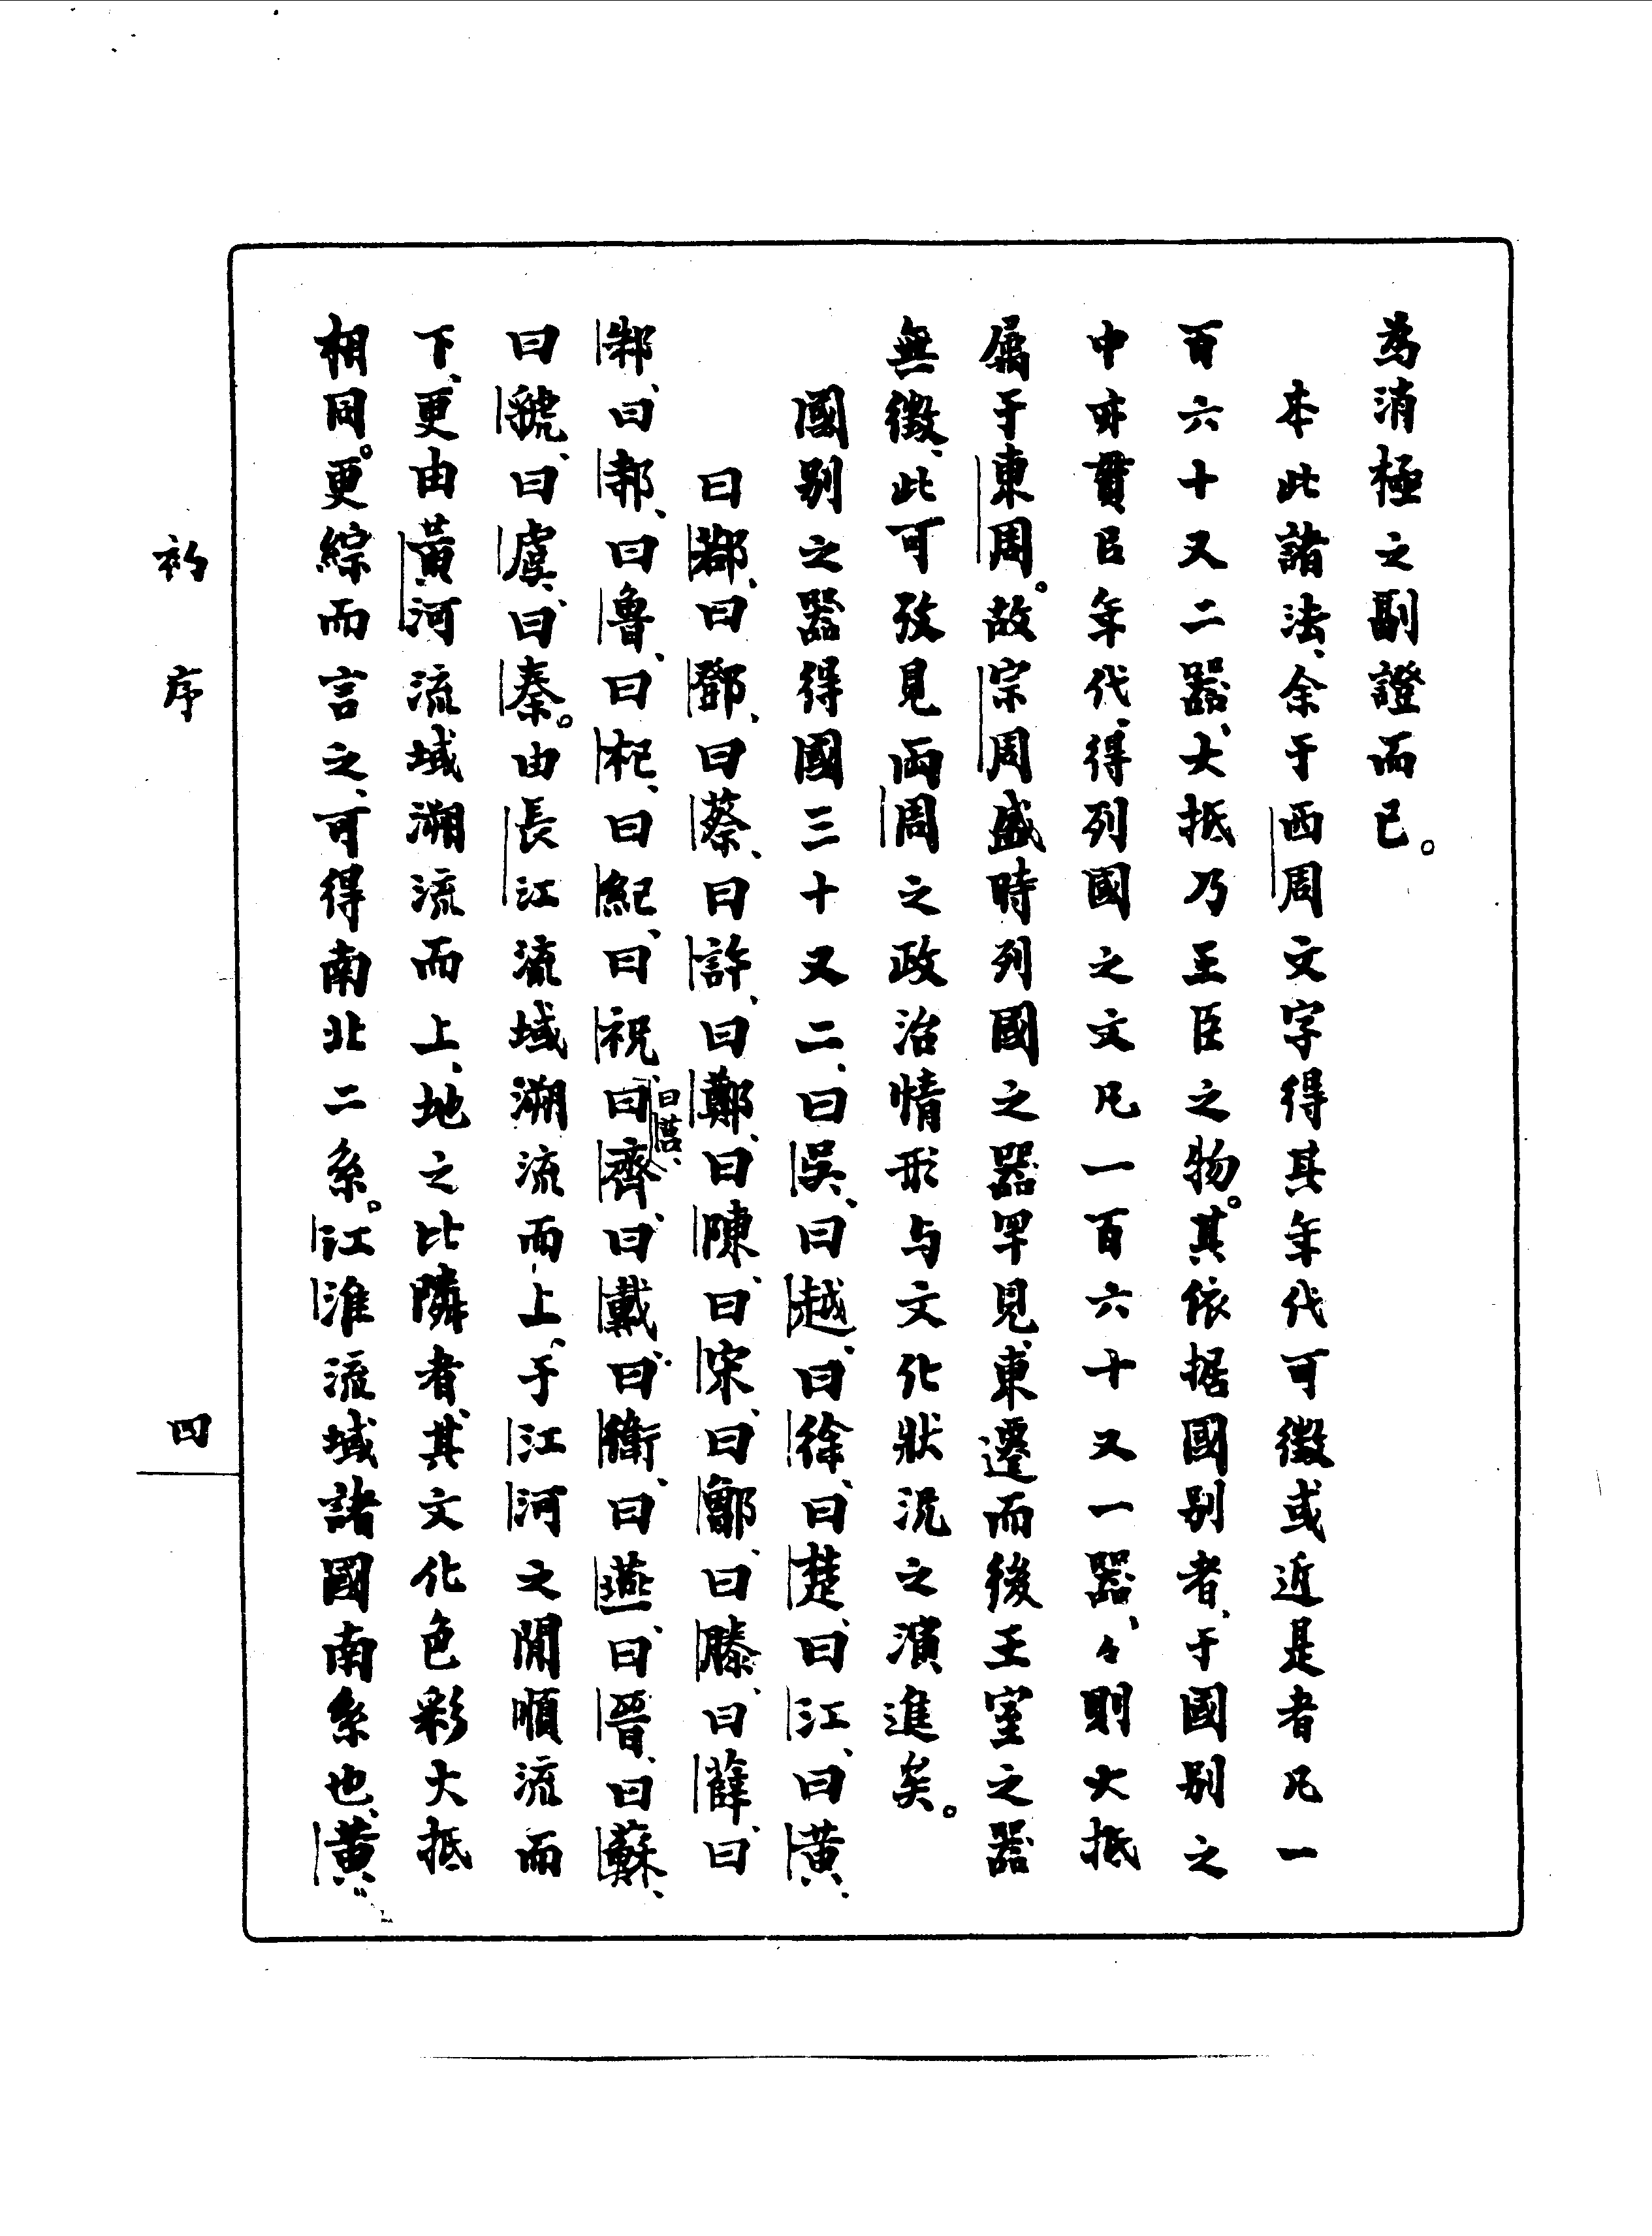 為消極之副證而已。
本此諸法、余于西周文字得其年代可徵或近是者凡一
百六十又二器、大抵乃王臣之物。其依据國别者、于國别之
中亦貫㠯年代、得列國之文凡一百六十又一器、々則大抵
屬于東周。故宗周盛時列國之器罕見、東遷而後王室之器
無徵、此可攷見兩周之政治情形与文化狀況之演進矣。
國别之器得國三十又二、曰吳、曰越、曰徐、曰楚、曰江、曰黃、
曰鄀、曰鄧、曰蔡、曰許、曰鄭、曰陳、曰宋、曰鄫、曰滕、曰薛、曰
邾、曰郳、曰魯、曰杞、曰紀、曰祝、曰莒、曰齊、曰戴、曰衞、曰燕、曰晉、曰蘇、
曰虢、曰虞、曰秦。由長江流域溯流而上、于江河之閒順流而
下、更由黃河流域溯流而上、地之比隣者、其文化色彩大抵
相同。更綜而言之、可得南北二系。江淮流域諸國南系也、黃
初序
四